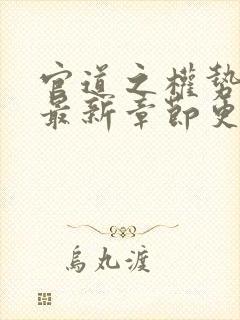 官道之權勢
最新章節更
烏丸渡